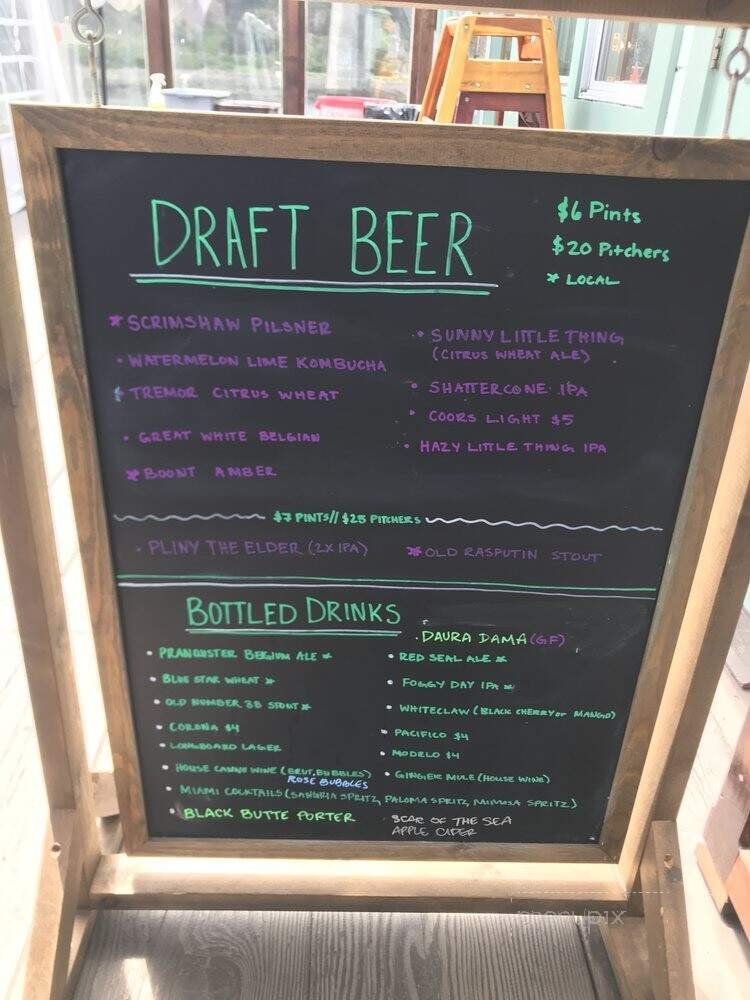 DRAFT BEER
$6 Pints
$20 Pitchers
* LOCAL
* SCRIMSHAW PILSNER
• WATERMELON LIME KOMBUCHA
* TREMOR CITRUS WHEAT
• GREAT WHITE BELGIAN
* BOONT AMBER
• SUNNY LITTLE THING
(CITRUS WHEAT ALE)
• SHATTERCONE IPA
• COORS LIGHT $5
• HAZY LITTLE THING IPA
$7 PINTS// $25 PITCHERS
• PLINY THE ELDER (2X IPA)
* OLD RASPUTIN STOUT
BOTTLED DRINKS
• PRANQUSTER BELGIUM ALE *
• BLUE STAR WHEAT *
• OLD NUMBER 38 STOUT *
• CORONA $4
• LONGBOARD LAGER
• HOUSE CANNE WINE (BRUT, BUBBLES)
ROSE BUBBLES
• MIAMI COCKTAILS (SANGRIA SPRITZ, PALOMA SPRITZ, MIMOSA SPRITZ)
• BLACK BUTTE PORTER
• DAURA DAMA (GF)
• RED SEAL ALE *
• FOGGY DAY IPA *
• WHITECLAW (BLACK CHERRY or MANGO)
• PACIFICO $4
• MODELO $4
• GINGER MULE (HOUSE WINE)
SCAR OF THE SEA
APPLE CIDER